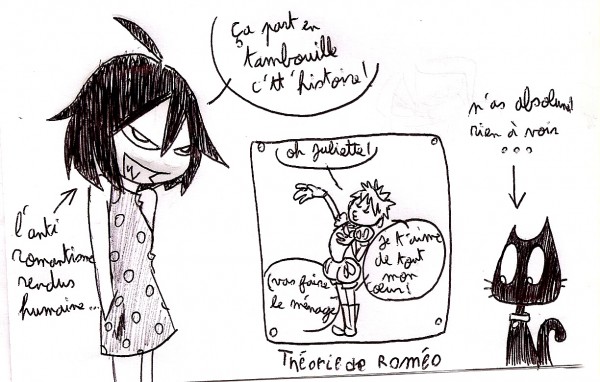 ça part en
tambouille
c'tt' histoire!
n'as absolument
rien à voir
...
oh juliette!
je t'aime
de tout
mon
coeur!
(vas faire
le ménage)
l'anti
romantisme
rendus
humaine...
Théorie de Roméo